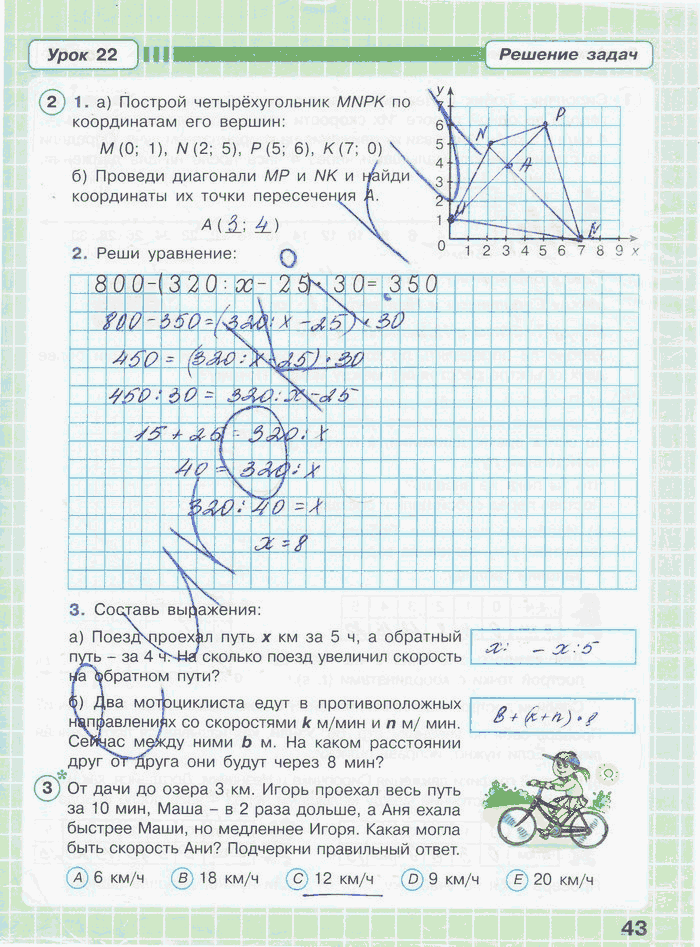 Урок 22
Решение задач
2 1. а) Построй четырёхугольник MNPK по
координатам его вершин:
M (0; 1), N (2; 5), P (5; 6), K (7; 0)
б) Проведи диагонали MP и NK и найди
координаты их точки пересечения A.
A ( 3 ; 4 )
y
7
6
5
4
3
2
1
0
1 2 3 4 5 6 7 8 9 x
N
P
A
2. Реши уравнение:
800-(320:x-25)·30=350
800-350=(320:x-25)·30
450=(320:x-25)·30
450:30=320:x-25
15+25=320:x
40=320:x
320:40=x
x=8
3. Составь выражения:
а) Поезд проехал путь x км за 5 ч, а обратный
путь – за 4 ч. На сколько поезд увеличил скорость
на обратном пути?
x: - x:5
б) Два мотоциклиста едут в противоположных
направлениях со скоростями k м/мин и n м/ мин.
Сейчас между ними b м. На каком расстоянии
друг от друга они будут через 8 мин?
b+(k+n)·8
3* От дачи до озера 3 км. Игорь проехал весь путь
за 10 мин, Маша – в 2 раза дольше, а Аня ехала
быстрее Маши, но медленнее Игоря. Какая могла
быть скорость Ани? Подчеркни правильный ответ.
A 6 км/ч B 18 км/ч C 12 км/ч D 9 км/ч E 20 км/ч
43